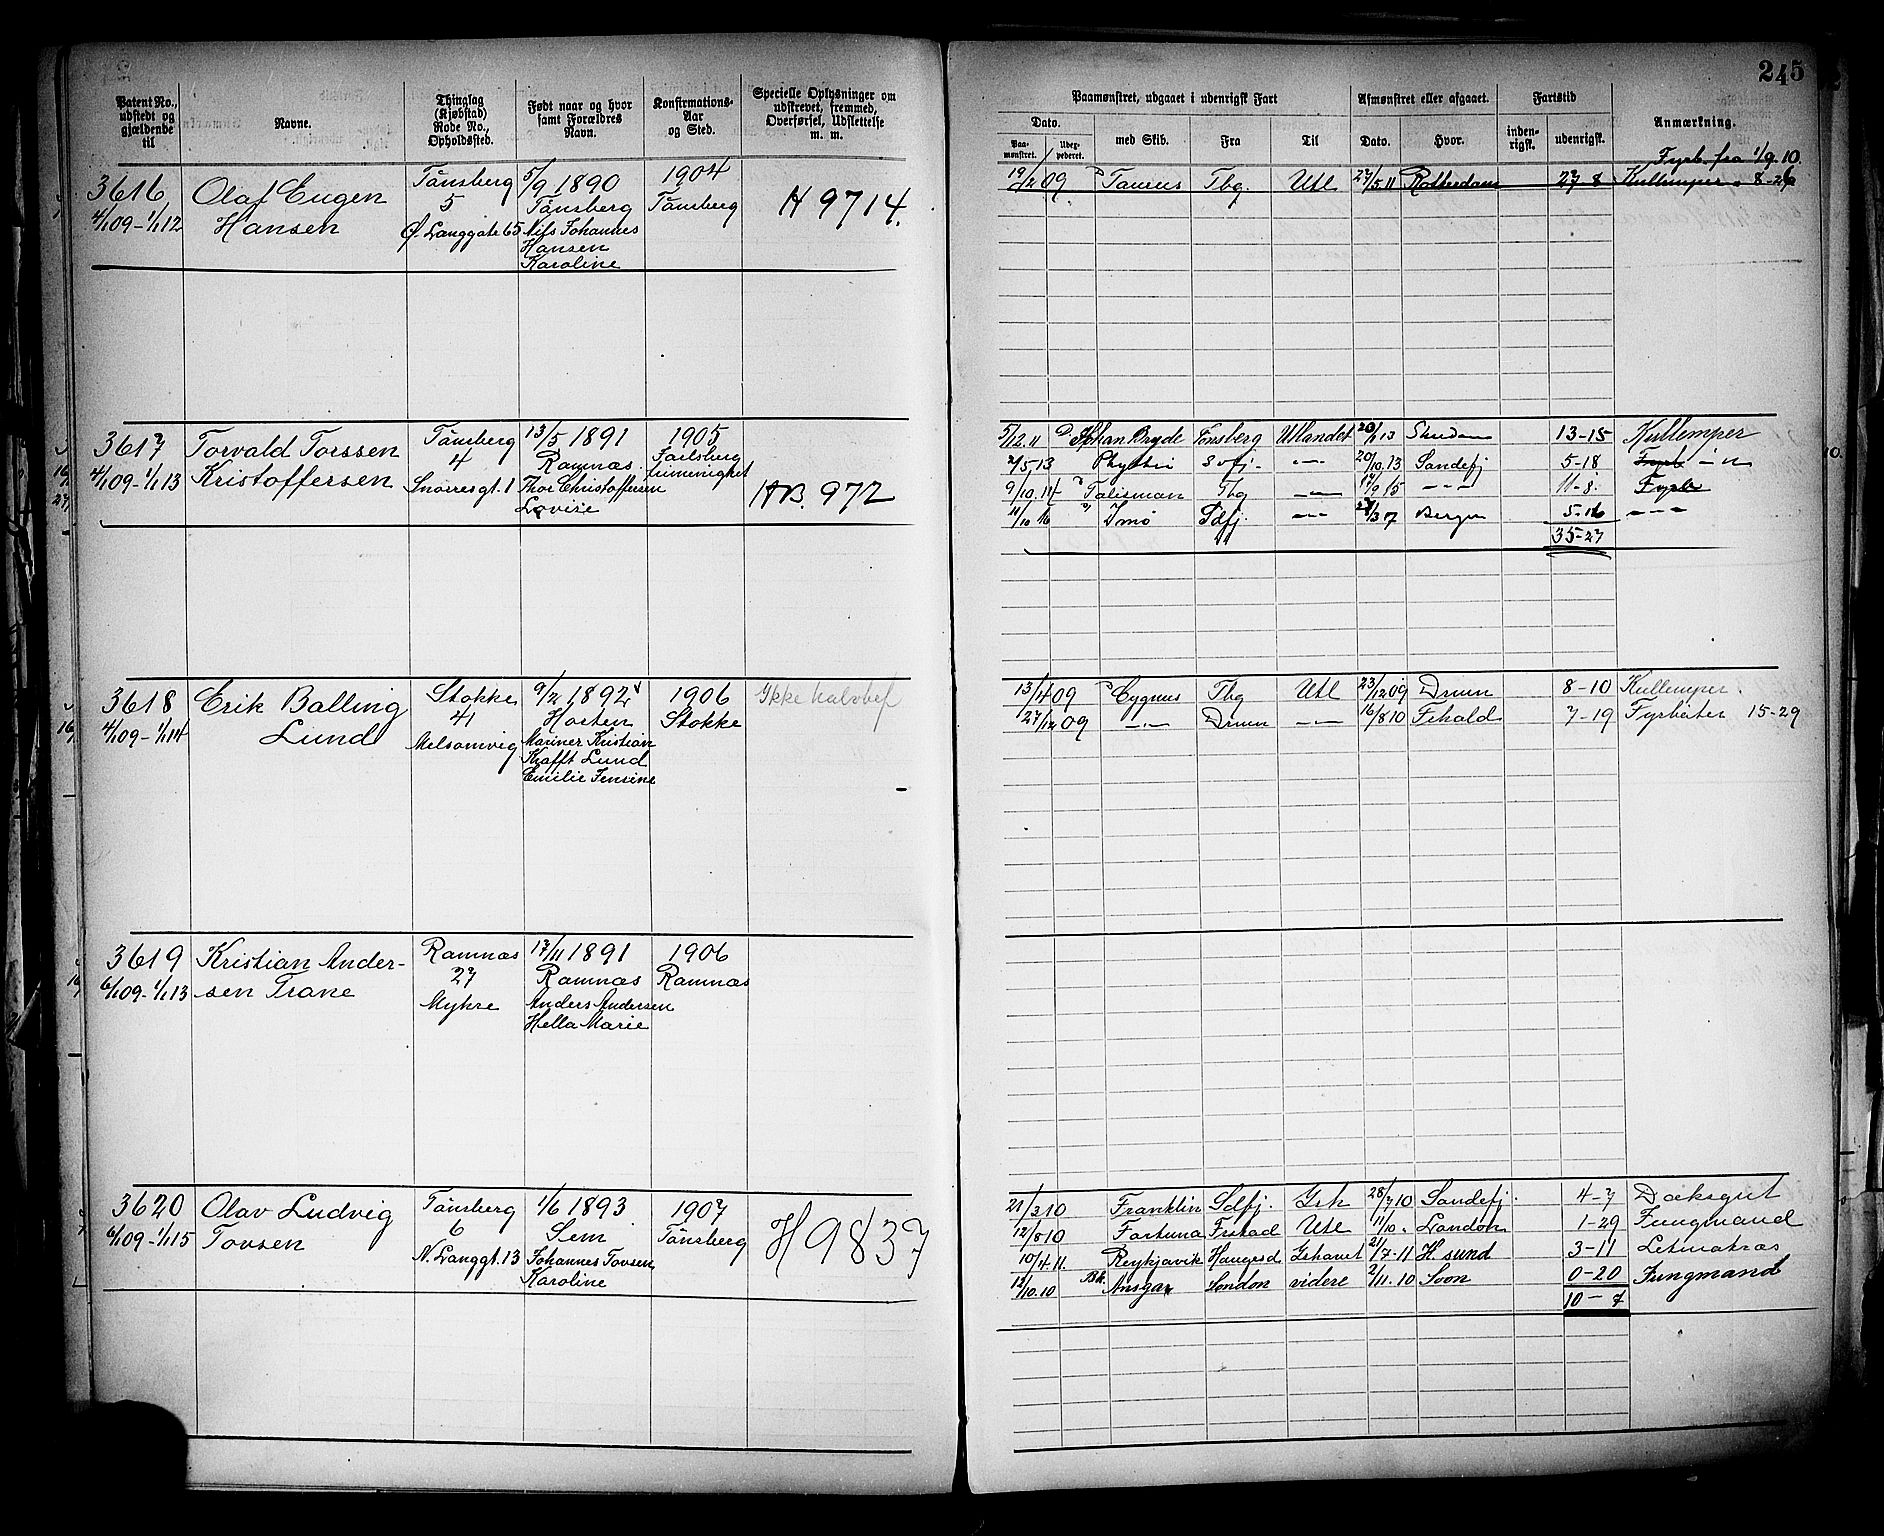 245
Patent No., udstedt og gjældende til
Navne.
Thinglag (Kjøbstad) Rode No., Opholdssted.
Født naar og hvor samt Forældres Navn.
Konfirmations-Aar og Sted.
Specielle Oplysninger om udskrevet, fremmed, Overførsel, Udslettelse m. m.
Paamønstret, udgaaet i udenrigsk Fart
Dato.
Paa-mønstret.
med Skib.
Fra
Til
Afmønstret eller afgaaet.
Dato.
Hvor.
Fartstid
inden-rigsk.
udenrigsk.
Anmærkning.
3616
4/1 09 - 1/1 12
Olaf Eugen
Hansen
Tønsberg
5
Ø. Langgate 65
5/9 1890
Tønsberg
Nils Johannes
Hansen
Karoline
1904
Tønsberg
H 9714.
Fyrb. fra 1/9.10.
19/2 09 D Taurus Tbg. Utl 27/5 11 Rotterdam 27-8 Kullemper 8-26
3617
4/1 09 - 1/1 13
Torvald Torssen
Kristoffersen
Tønsberg
4
Snorresgt. 1
13/5 1891
Ramnæs
Thor Christoffersen
Lovise
1905
Jarlsberg
frimenighet
HB. 972
5/12.11 D Johan Bryde Tønsberg Utlandet 20/1 13 13-15 Kullemper
2/5.13 Sofj. -"- 20/10.13 Sandefj 5-18 Fyrb -"-
9/10.14 " Talisman Tbg -"- 17/9 15 -"- 11-8. Fyrb
11/10 16 " Imo Sdfj. -"- Bergen 5-16 -"-
35-27
3618
4/1 09 - 1/1 14
Erik Balling
Lund
Stokke
41
Melsomvig
9/2 1892
Horten
Mariner Kristian
Krafft Lund
Emilie Jensine
1906
Stokke
Ikke halvbef
13/4 09 D Cygnus Tbg Utl 23/12 09 Drmn 8-10 Kullemper
27/12 09 -"- Drmn -"- 16/8 10 Frhald 7-19 Fyrbøter 15-29
3619
6/1 09 - 1/1 13
Kristian Ander-
sen Trane
Ramnæs
27
Myhre
17/11 1891
Ramnæs
Anders Andersen
Hella Marie
1906
Ramnæs
3620
6/1 09 - 1/1 15
Olav Ludvig
Tovsen
Tønsberg
6
N. Langgt. 13
1/6 1893
Sem
Johannes Tovsen
Karoline
1907
Tønsberg
H 9837
21/2 10 Franklin Sdfj. Ish 28/7 10 Sandefj. 4-7 Dæksgut
12/8 10 Fortuna Frstad Utl 11/10. London 1-29 Jungmand
10/4.11. Reykjavik Haugesd Ishavet 21/7-11 H. sund 3-11 Letmatros
12/10.10 Bk. Ansgar London videre 2/11.10 Soon 0-20 Jungmand
10-7